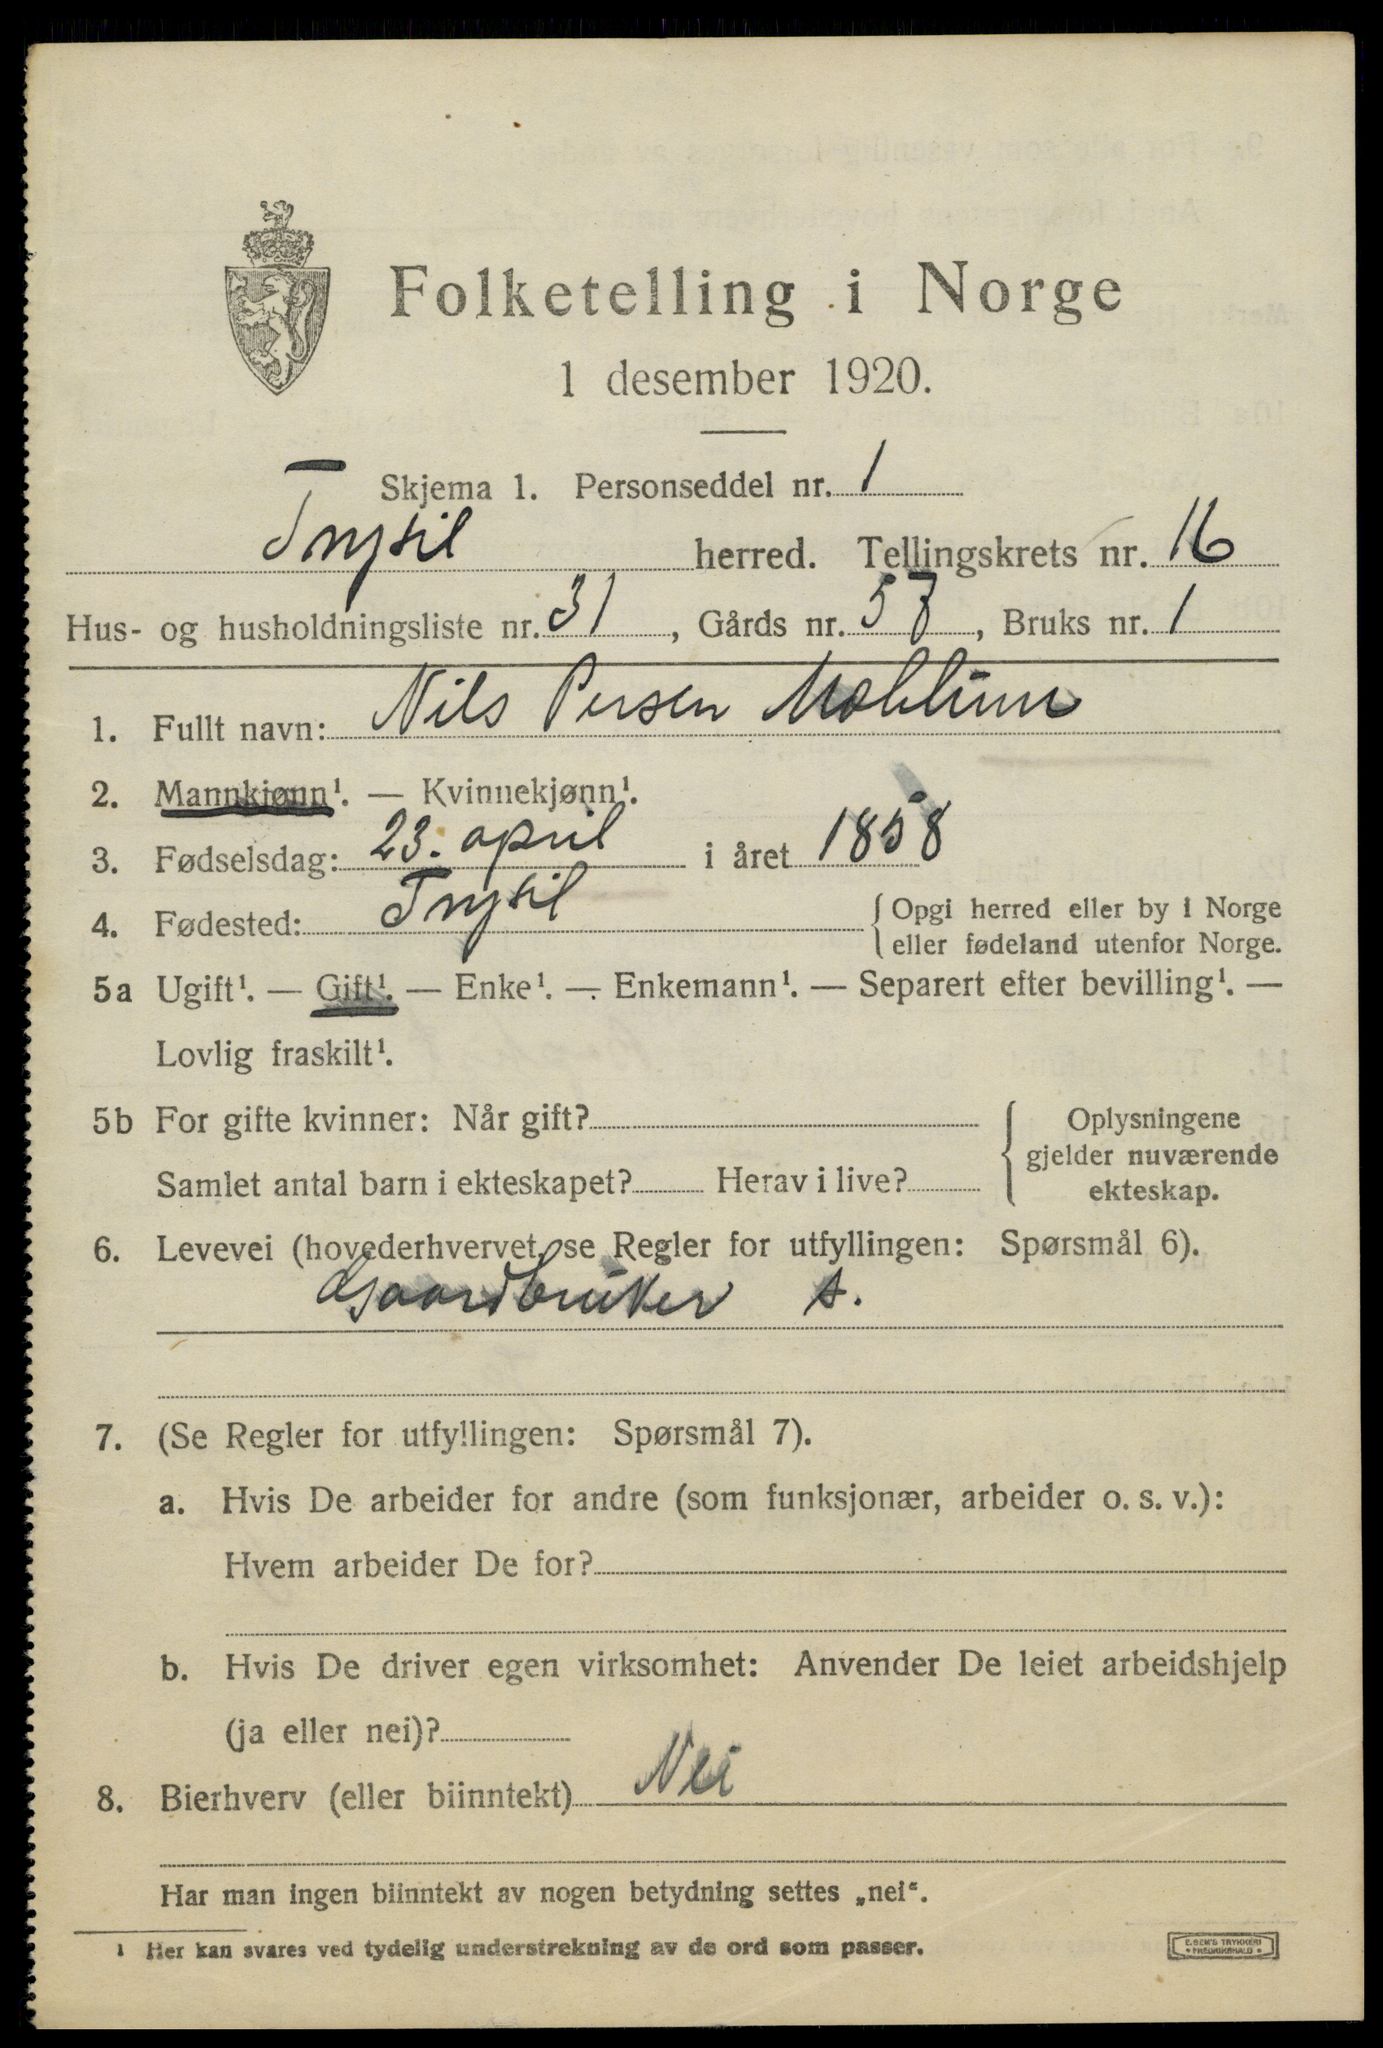 Folketelling i Norge
1 desember 1920.
Skjema 1. Personseddel nr. 1
Trysil herred. Tellingskrets nr. 16
Hus- og husholdningsliste nr. 31, Gårds nr. 57, Bruks nr. 1
1. Fullt navn: Nils Persen
2. Mannkjønn¹. — Kvinnekjønn¹.
3. Fødselsdag: 23. april i året 1858
4. Fødested: Trysil {Opgi herred eller by i Norge
eller fødeland utenfor Norge.
5a Ugift¹. — Gift¹. — Enke¹. — Enkemann¹. — Separert efter bevilling¹. —
Lovlig fraskilt¹.
5b For gifte kvinner: Når gift?
Samlet antal barn i ekteskapet? Herav i live?
{Oplysningene
gjelder nuværende
ekteskap.
6. Levevei (hovederhvervet, se Regler for utfyllingen: Spørsmål 6).
Gaardbruker s.
7. (Se Regler for utfyllingen: Spørsmål 7).
a. Hvis De arbeider for andre (som funksjonær, arbeider o. s. v.):
Hvem arbeider De for?
b. Hvis De driver egen virksomhet: Anvender De leiet arbeidshjelp
(ja eller nei)?
8. Bierhverv (eller biinntekt) Nei
Har man ingen biinntekt av nogen betydning settes „nei“.
¹ Her kan svares ved tydelig understrekning av de ord som passer.
E. SEM'S TRYKKERI
• FREDRIKSHALD •